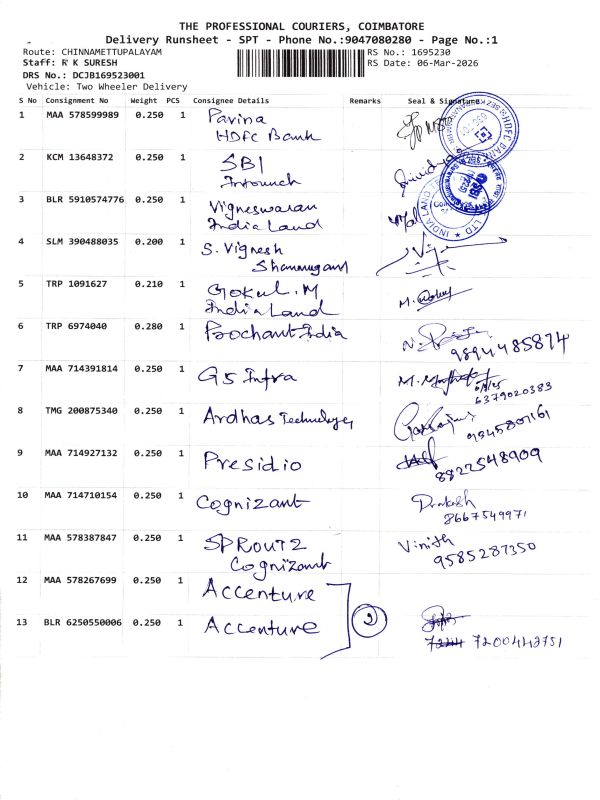 THE PROFESSIONAL COURIERS, COIMBATORE
Delivery Runsheet - SPT - Phone No.:9047080280 - Page No.:1
Route: CHINNAMETTUPALAYAM
RS No.: 1695230
Staff: R K SURESH
RS Date: 06-Mar-2026
DRS No.: DCJB169523001
Vehicle: Two Wheeler Delivery
S No Consignment No Weight PCS Consignee Details Remarks Seal & Signature
1 MAA 578599989 0.250 1 Pavina
HDFC Bank
2 KCM 13648372 0.250 1 SBI
Intouch
3 BLR 5910574776 0.250 1 Vigneswaran
India Land
4 SLM 390488035 0.200 1 S. Vignesh
Shanmugam
5 TRP 1091627 0.210 1 Gokul. M
India Land
6 TRP 6974040 0.280 1 Poochant India
9894485874
7 MAA 714391814 0.250 1 G5 Infra
6379020383
8 TMG 200875340 0.250 1 Ardhas Technology
9 MAA 714927132 0.250 1 Presidio
8822548909
10 MAA 714710154 0.250 1 Cognizant Prakash
8667549971
11 MAA 578387847 0.250 1 SPROUTZ Vinith
Cognizant 9585287350
12 MAA 578267699 0.250 1 Accenture
2
13 BLR 6250550006 0.250 1 Accenture
7200443751